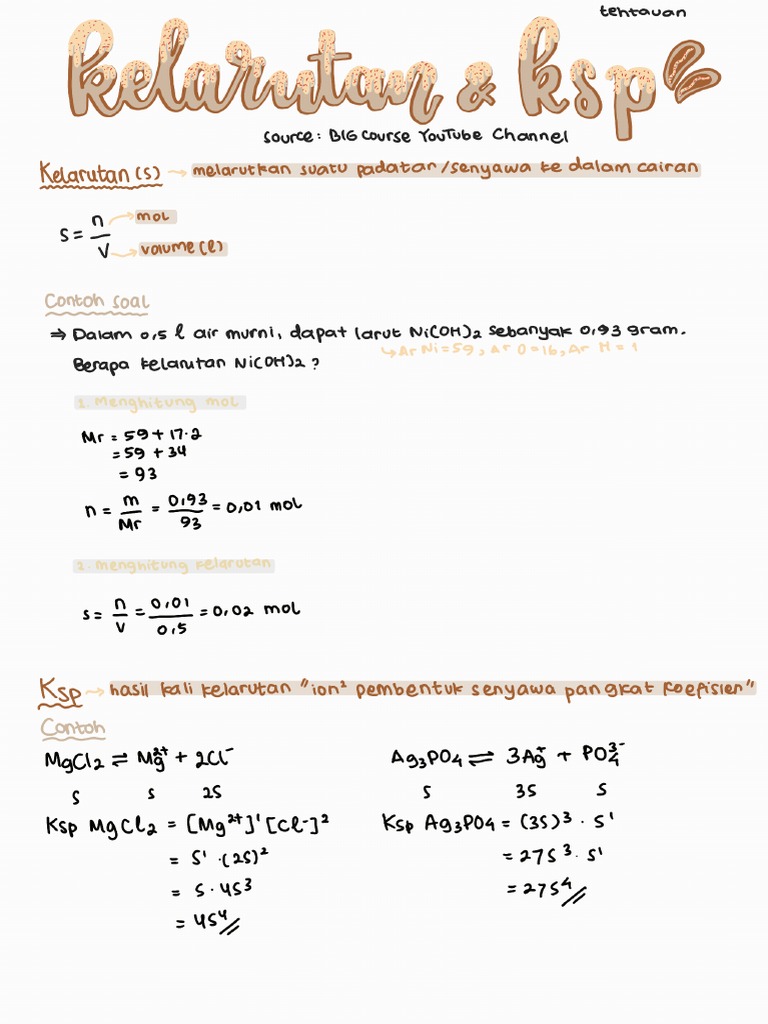 tentauan
kelarutan & ksp
source: BIG COURSE YouTube Channel
Kelarutan (s) → melarutkan suatu padatan/senyawa ke dalam cairan
s = n/V
n → mol
V → volume (l)
Contoh soal
⇒ Dalam 0,5 l air murni, dapat larut Ni(OH)2 sebanyak 0,93 gram.
↳ Ar Ni = 59, Ar O = 16, Ar H = 1
Berapa kelarutan Ni(OH)2 ?
1. Menghitung mol
Mr = 59 + 17.2
= 59 + 34
= 93
n = m/Mr = 0,93/93 = 0,01 mol
2. menghitung kelarutan
s = n/v = 0,01/0,5 = 0,02 mol
Ksp → hasil kali kelarutan "ion² pembentuk senyawa pangkat koefisien"
Contoh
MgCl2 ⇌ Mg²⁺ + 2Cl⁻
s s 2s
Ksp MgCl2 = [Mg²⁺]¹ [Cl⁻]²
= s¹ · (2s)²
= s · 4s³
= 4s⁴//
Ag3PO4 ⇌ 3Ag⁺ + PO4³⁻
s 3s s
Ksp Ag3PO4 = (3s)³ · s¹
= 27s³ · s¹
= 27s⁴//